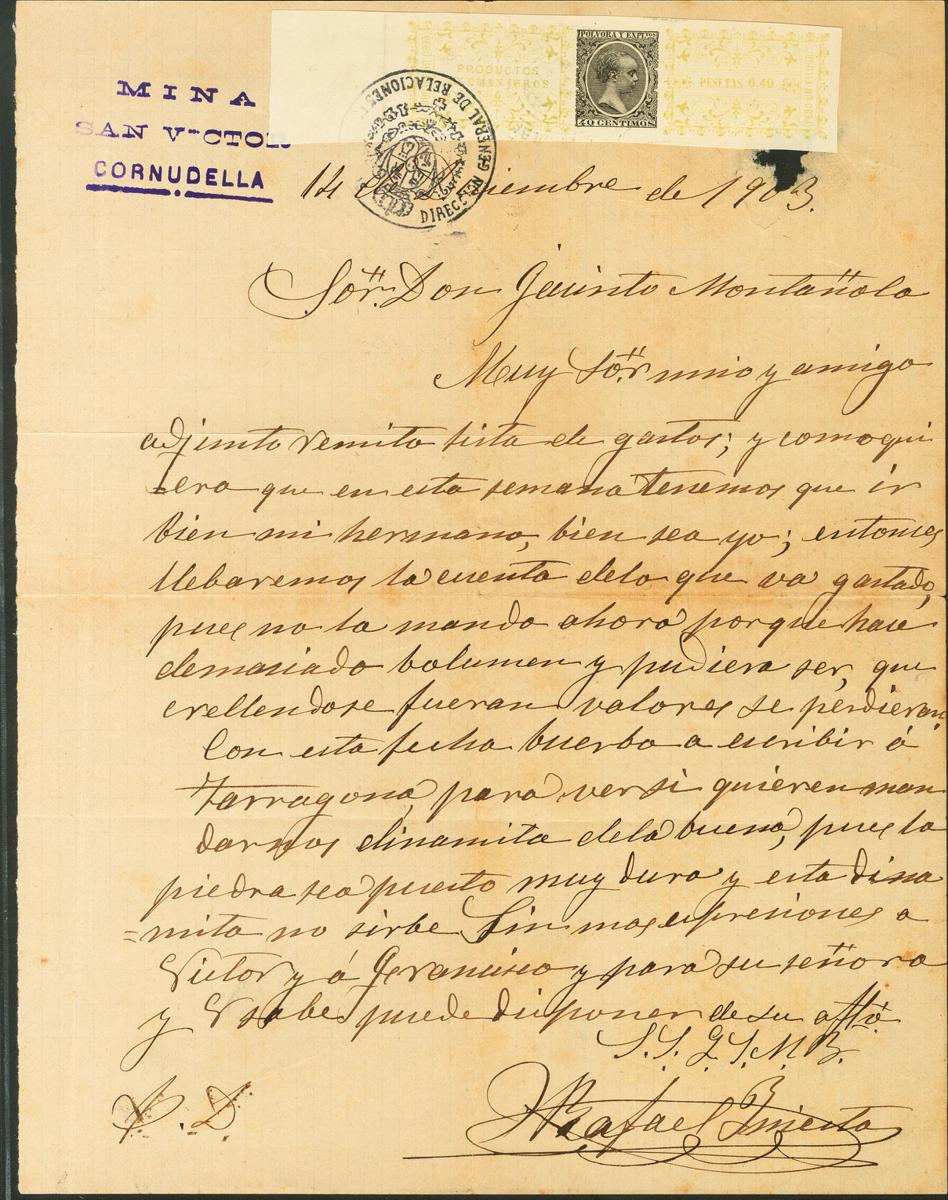 MINA
SAN VICTOR
CORNUDELLA
POLVORA Y EXPLOS
PRODUCTOS
PESETAS 0,40
40 CENTIMOS
NERAL DE RELACIONES
DIRECC
14 de iembre de 1903.
Sör. Don Jacinto Montañola
Muy Sör mio y amigo
adjunto remito lista de gastos; y como qui
=era que en esta semana tenemos que ir
bien mi hermano, bien sea yo; entonces
llebaremos la cuenta delo que va gastado,
pues no la mando ahora porque hace
demasiado bolumen y pudiera ser, que
crellendose fueran valores se perdieran.
Con esta fecha buerbo a escribir á
Tarragona, para versi quieren man
darnos dinamita dela buena, pues la
piedra sea puesto muy dura y esta dina
=mita no sirbe Sin mas espresiones a
Victor y á Francisco y para su señora
y V sabe puede disponer de su affo
S.S.Q.S.M.B.
Rafael
P.D